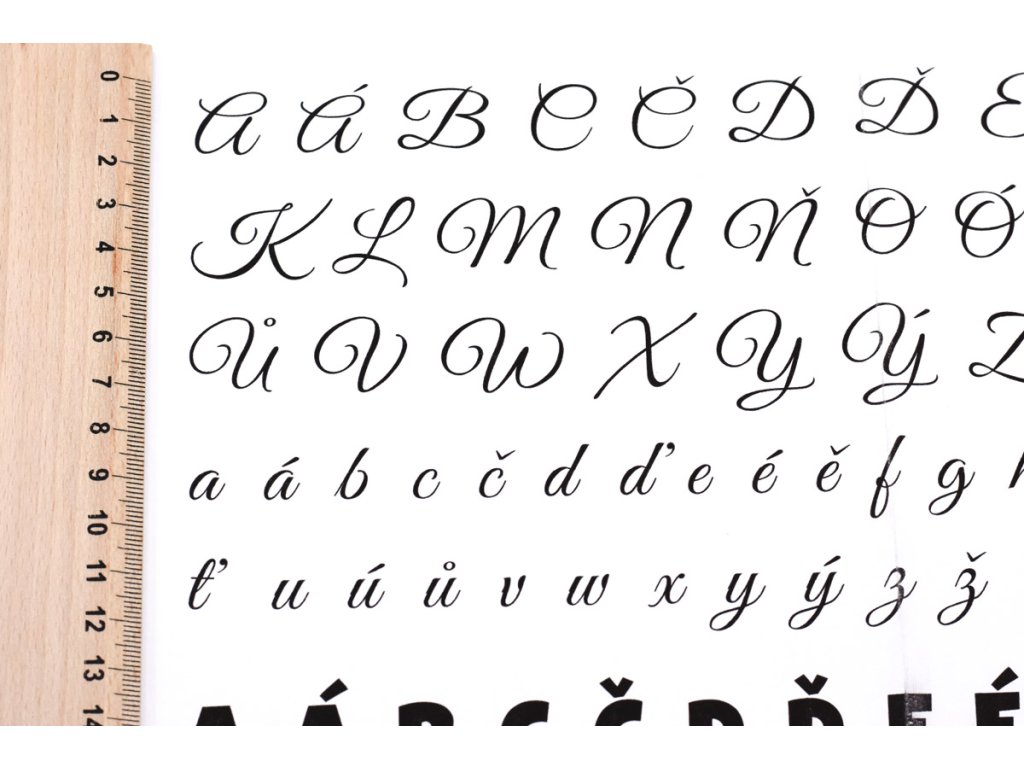 0
1
2
3
4
5
6
7
8
9
10
11
12
13
14
A Á B C Č D Ď E
K L M N Ň O Ó
Ů V W X Y Ý Z
a á b c č d ď e é ě f g h
ť u ú ů v w x y ý z ž
A Á B C Č D Ď E É